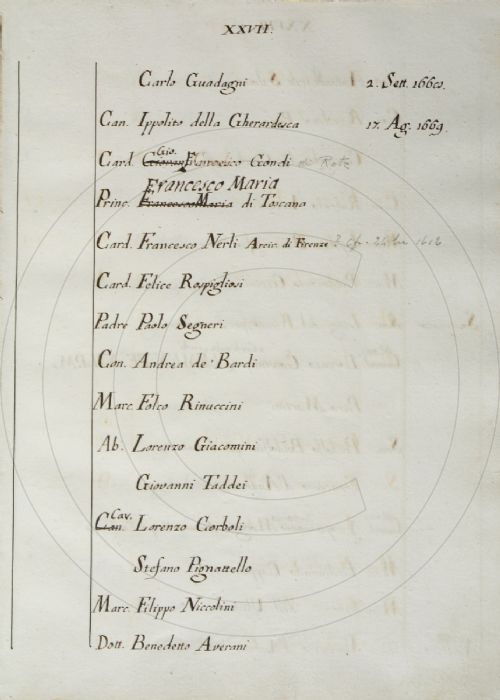 XXVII.
Carlo Guadagni 2. Sett. 1660.
Can. Ippolito della Gherardesca 17. Ag. 1669.
Gio.
Card. Giovan Francesco Gondi di Retz
Francesco Maria
Princ. Francesco Maria di Toscana
Card. Francesco Nerli Arciv. di Firenze
Card. Felice Rospigliosi
Padre Paolo Segneri
Con. Andrea de' Bardi
Marc. Folco Rinuccini
Ab. Lorenzo Giacomini
Giovanni Taddei
Cav.
Can. Lorenzo Corboli
Stefano Pignattello
Marc. Filippo Niccolini
Dott. Benedetto Averani